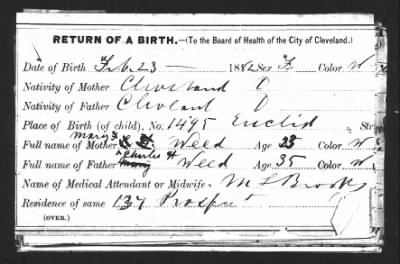 RETURN OF A BIRTH.—(To the Board of Health of the City of Cleveland.)
Date of Birth Feb. 23 — 1882 Sex F Color W
Nativity of Mother Cleveland O
Nativity of Father Cleveland O
Place of Birth (of child), No. 1495 Euclid Str
Mary S
Full name of Mother Weed Age 25 Color W
Charles H
Full name of Father Mary Weed Age 35 Color W
Name of Medical Attendant or Midwife, M L Brooks
Residence of same 137 Prospect
(OVER.)